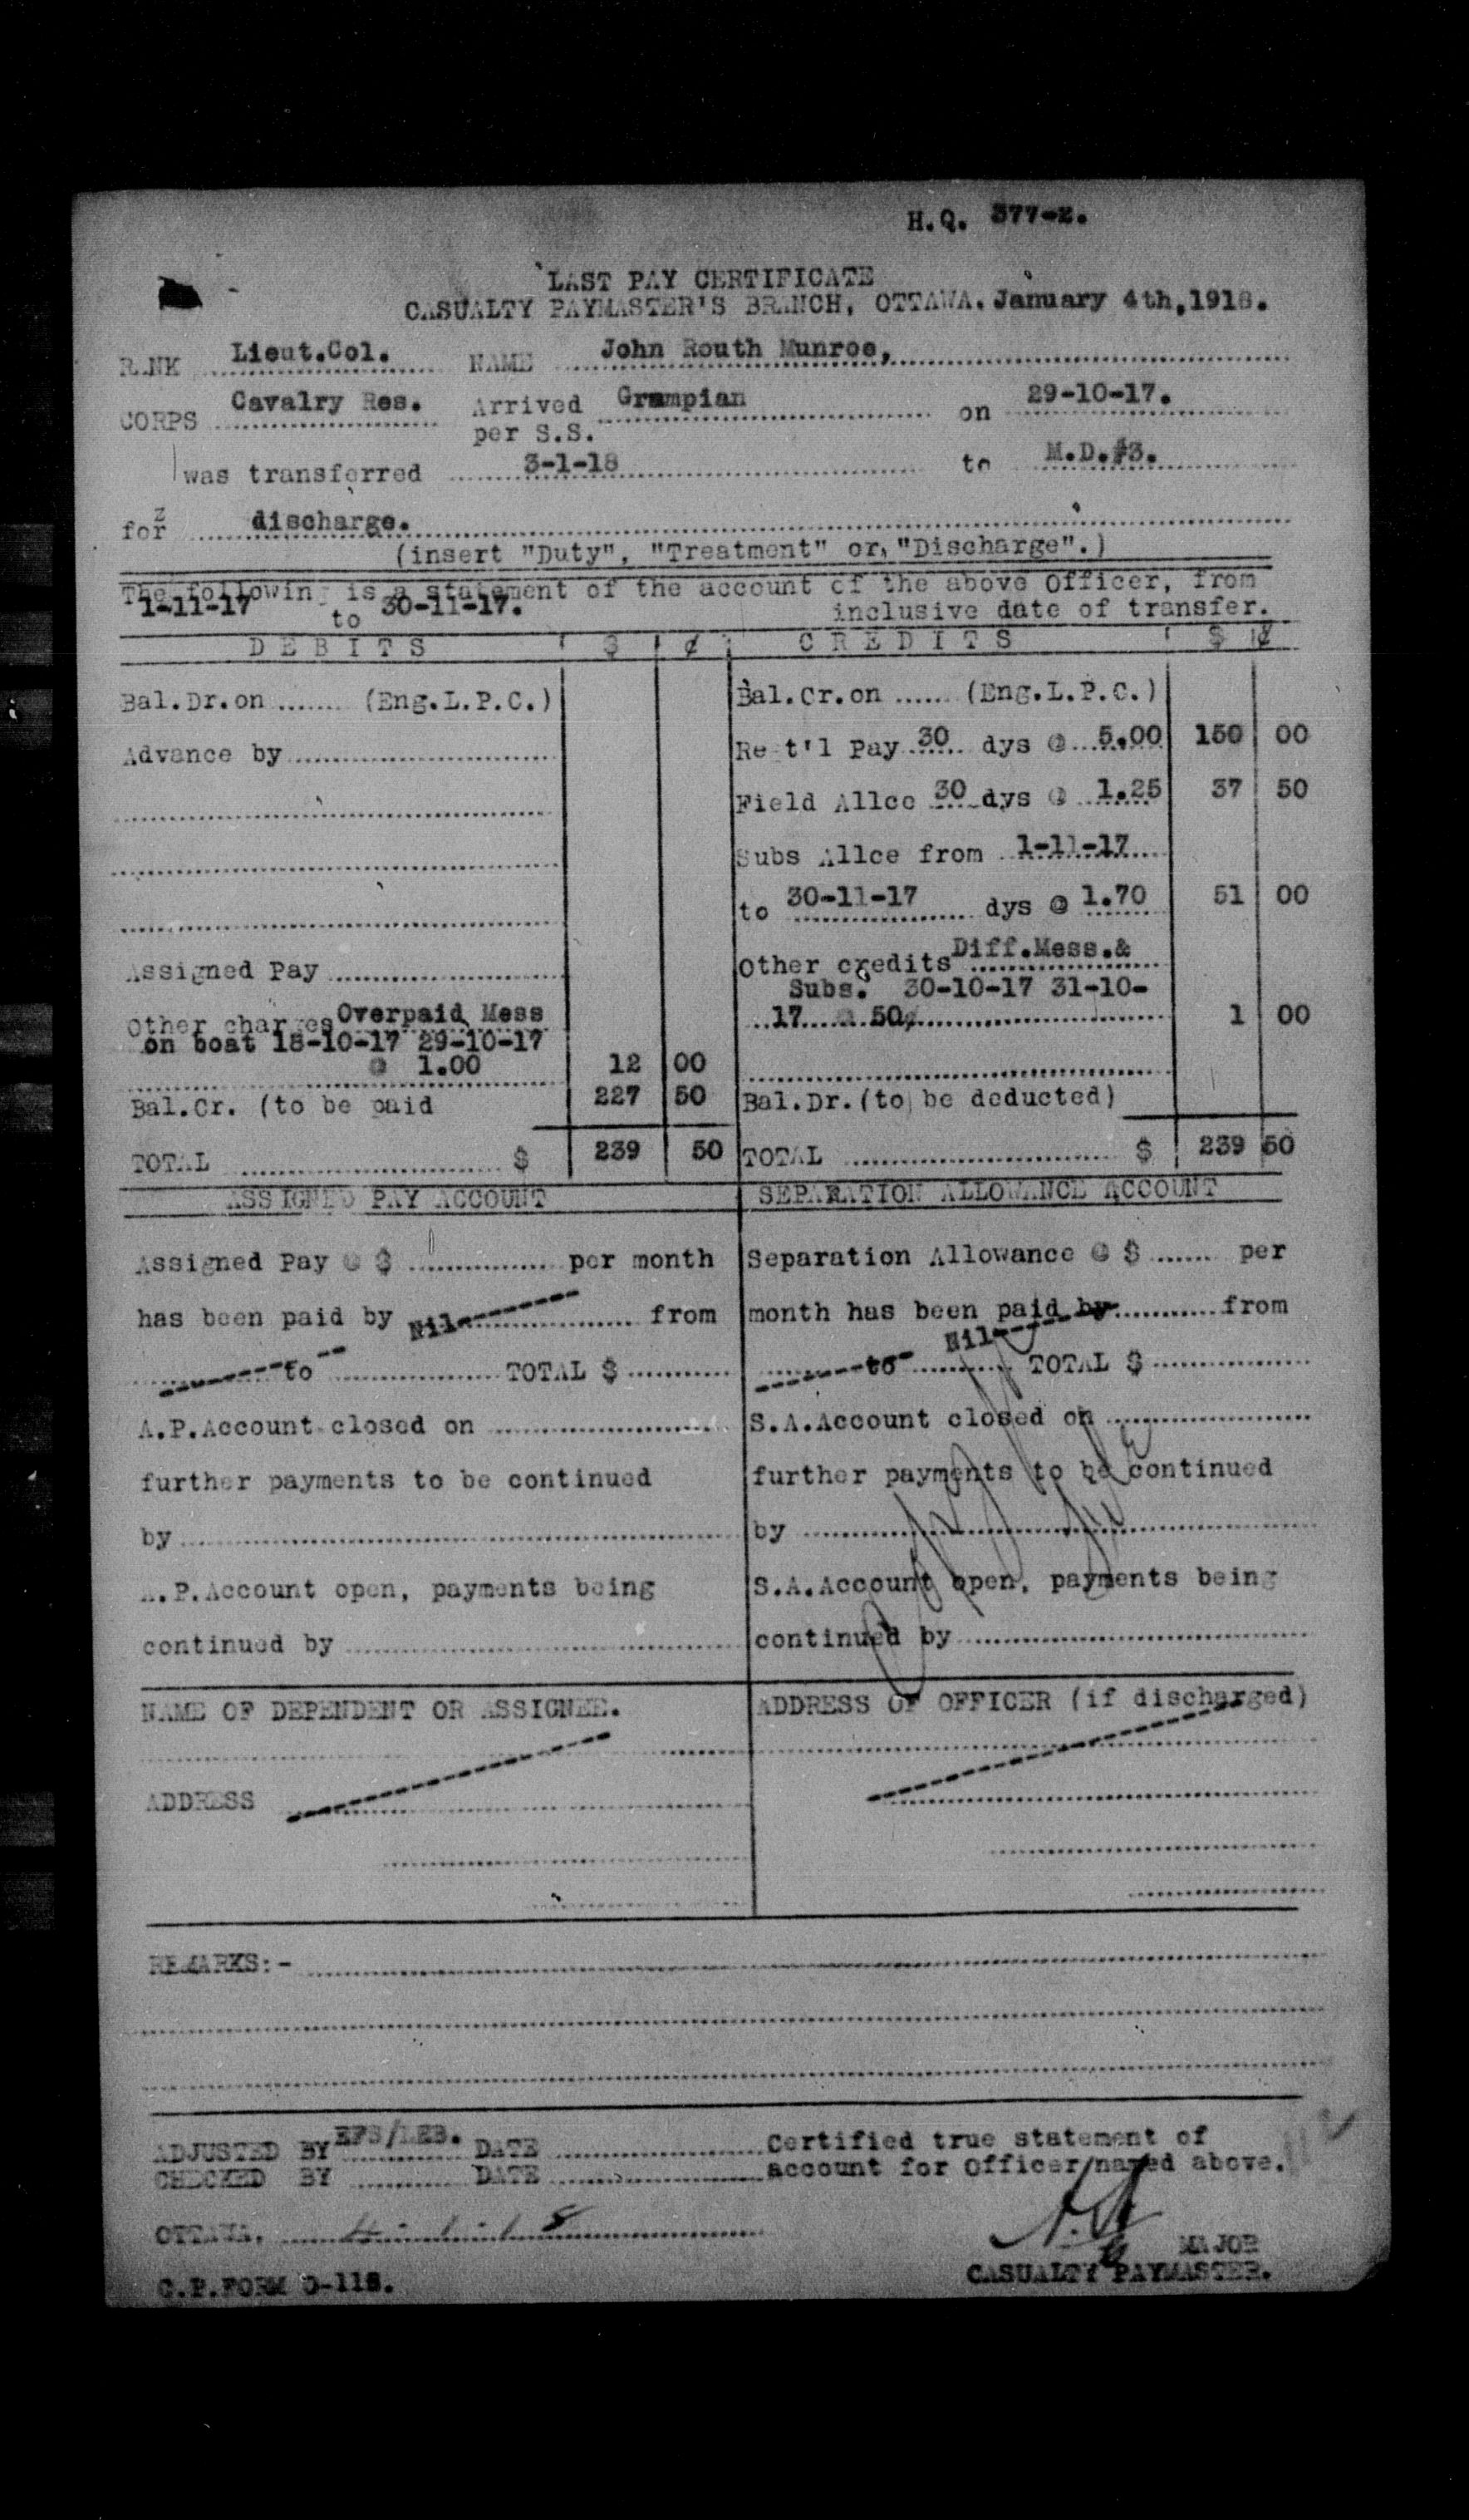 H.Q. 377-Z.
LAST PAY CERTIFICATE
CASUALTY PAYMASTER'S BRANCH, OTTAWA. January 4th,1918.
RANK Lieut.Col. NAME John Routh Munroe,
CORPS Cavalry Res. Arrived per S.S. Grampian on 29-10-17.
was transferred 3-1-18 to M.D.#3.
for discharge.
(insert "Duty", "Treatment" or, "Discharge".)
The following is a statement of the account of the above Officer, from
1-11-17 to 30-11-17. inclusive date of transfer.
DEBITS $ ¢ CREDITS $ ¢
Bal.Dr.on ...... (Eng.L.P.C.) Bal.Cr.on ...... (Eng.L.P.C.)
Advance by Reg't'l Pay 30 dys @ 5.00 150 00
Field Allce 30 dys @ 1.25 37 50
Subs Allce from 1-11-17
to 30-11-17 dys @ 1.70 51 00
Assigned Pay Other credits Diff.Mess.&
Subs. 30-10-17 31-10-
Other charges Overpaid Mess 17 @ 50¢ 1 00
on boat 18-10-17 29-10-17
@ 1.00 12 00
Bal.Cr. (to be paid 227 50 Bal.Dr.(to be deducted)
TOTAL $ 239 50 TOTAL $ 239 50
ASSIGNED PAY ACCOUNT SEPARATION ALLOWANCE ACCOUNT
Assigned Pay @ $ per month Separation Allowance @ $ per
has been paid by Nil from month has been paid by from
to TOTAL $ Nil to TOTAL $
A.P.Account closed on S.A.Account closed on
further payments to be continued further payments to be continued
by by
A.P.Account open, payments being S.A.Account open, payments being
continued by continued by
NAME OF DEPENDENT OR ASSIGNEE. ADDRESS OF OFFICER (if discharged)
ADDRESS
REMARKS:-
ADJUSTED BY EFS/LEB. DATE Certified true statement of
CHECKED BY DATE account for Officer named above.
OTTAWA, 4-1-18
MAJOR
C.P.FORM O-118. CASUALTY PAYMASTER.